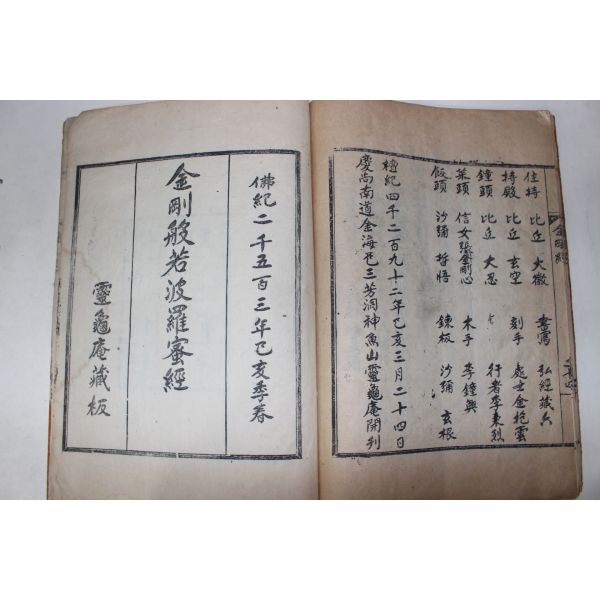 住持 比丘 大徹 書寫 弘經藏六
持殿 比丘 玄空 刻手 處士金抱雲
鐘頭 比丘 大忍 行者李東烈
菜頭 信女張金剛心 木手 李鐘興
飯頭 沙彌 哲悟 鍊板 沙彌 玄根
檀紀四千二百九十二年己亥三月二十四日
慶尚南道金海邑三芳洞神魚山靈龜庵開刊
金剛經
佛紀二千五百三年己亥季春
金剛般若波羅蜜經
靈龜庵藏板